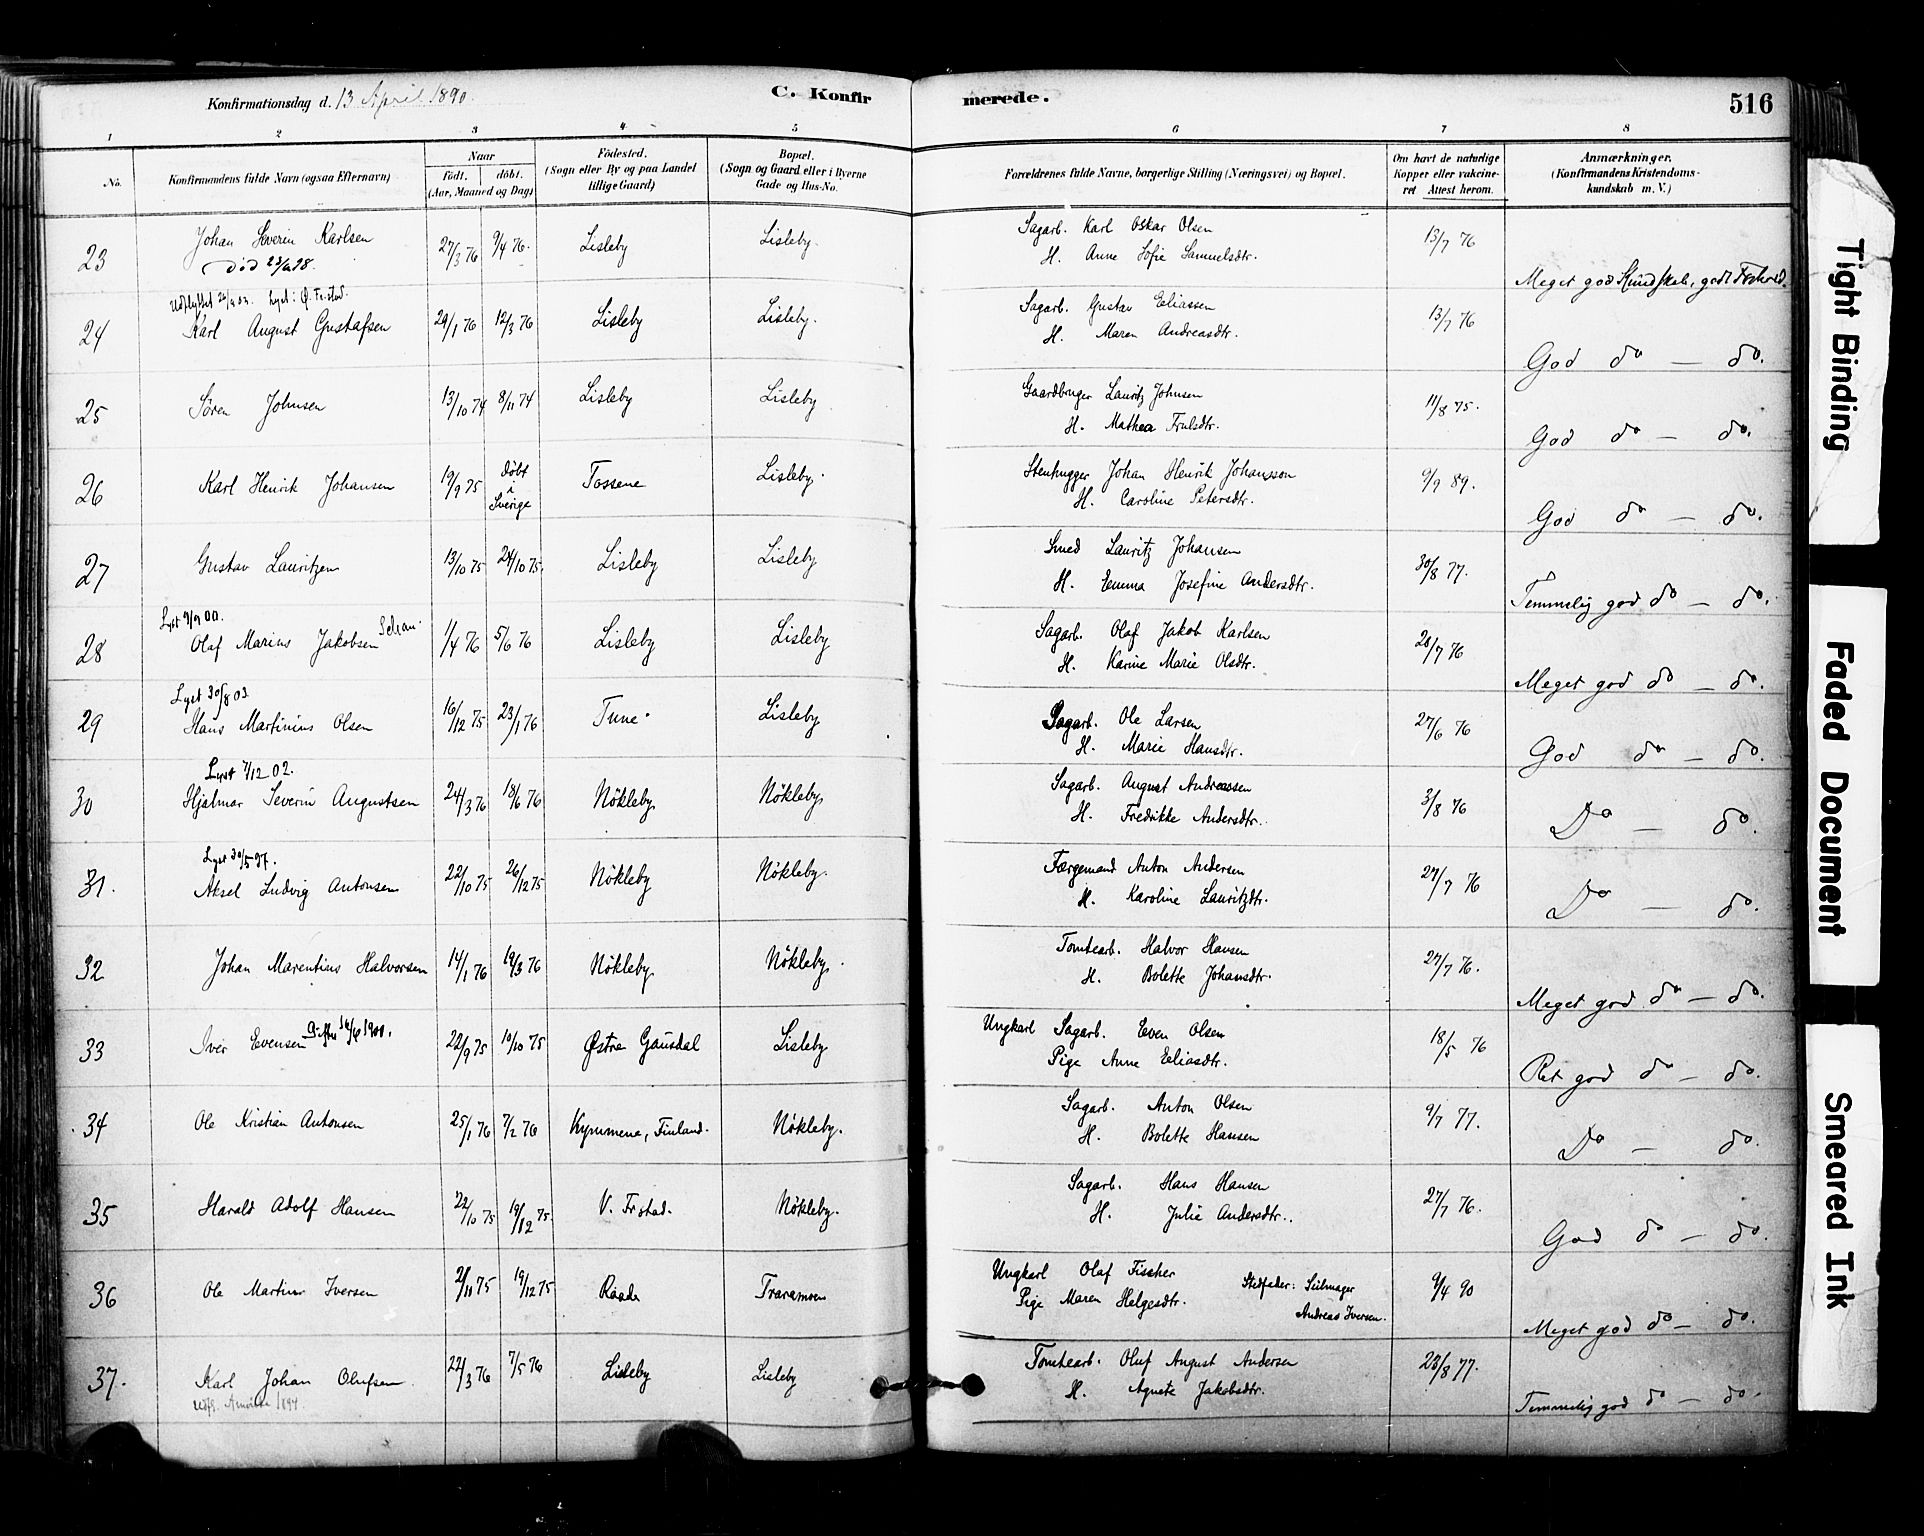 Konfirmationsdag d. 13 April 1890.
C. Konfirmerede.
516
1 2 3 4 5 6 7 8
No.
Konfirmandens fulde Navn (ogsaa Efternavn)
Naar
födt. döbt.
(Aar, Maaned og Dag)
Födested.
(Sogn eller By og paa Landet
tillige Gaard)
Bopæl.
(Sogn og Gaard eller i Byerne
Gade og Hus-No.
Forældrenes fulde Navne, borgerlige Stilling (Næringsvei) og Bopæl.
Om havt de naturlige
Kopper eller vakcine-
ret Attest herom.
Anmærkninger.
(Konfirmandens Kristendoms-
kundskab m. V.)
23 Johan Severin Karlsen 27/3 76 9/4 76. Lisleby Lisleby. Sagarb. Karl Oskar Olsen 13/7 76
H. Anne Sofie Samuelsdtr. Meget god Kundskab, godt Forhold.
24 Karl August Gustafsen 29/1 76 12/3 76 Lisleby Lisleby. Sagarb. Gustav Eliassen 13/7 76
H. Maren Andreasdtr. God do — do.
25 Sören Johnsen 13/10 74 8/11 74 Lisleby Lisleby Gaardbruger Lauritz Johnsen 11/8 75.
H. Mathea Frulsdtr. God do — do.
26 Karl Henrik Johansen 19/9 75 döbt i Sverige Tossene Lisleby. Stenhugger Johan Henrik Johansson 9/7 89.
H. Caroline Petersdtr. God do — do.
27 Gustav Lauritzen 13/10 75 24/10 75. Lisleby Lisleby Smed Lauritz Johansen 30/8 77.
H. Emma Josefine Andersdtr. Temmelig god do — do.
Lyst 9/9 00.
28 Olaf Marius Jakobsen 1/4 76 5/6 76 Lisleby Lisleby Sagarb. Olaf Jakob Karlsen 28/7 76
H. Karine Marie Olsdtr. Meget god do — do.
Lyst 30/8 03.
29 Hans Martinius Olsen 16/12 75 23/1 76 Tune. Lisleby Sagarb. Ole Larsen 27/6 76
H. Marie Hansdtr. God do — do.
Lyst 7/12 02.
30 Hjalmar Severin Augustsen 24/3 76 18/6 76 Nökleby Nökleby Sagarb. August Andreassen 3/8 76
H. Fredrikke Andersdtr. Do — do.
Lyst 30/5 97.
31. Aksel Ludvig Antonsen 22/10 75 26/12 75 Nökleby Nökleby. Færgemand Anton Andersen 27/7 76
H. Karoline Lauritzdtr. Do — do.
32 Johan Marentius Halvorsen 14/1 76 19/3 76 Nökleby Nökleby. Tomtearb. Halvor Hansen 27/7 76.
H. Bolette Johansdtr. Meget god do — do.
33 Iver Evensen 22/9 75 10/10 75 Østre Gausdal Lisleby Ungkarl Sagarb. Even Olsen 18/5 76
Pige Anne Eliasdtr. Ret god do — do.
34 Ole Kristian Antonsen 25/1 76 7/2 76 Kymmene, Finland. Nökleby. Sagarb. Anton Olsen 9/7 77.
H. Bolette Hansen Do — do.
35 Harald Adolf Hansen 22/10 75 19/12 75. V. Frstad. Nökleby. Sagarb. Hans Hansen 27/7 76.
H. Julie Andersdtr. God do — do.
36 Ole Martin Iversen 2/11 75 19/12 75 Raade Traramoen Ungkarl Olaf Fischer Stedfader: Seilmager 9/4 90
Pige Maren Helgesdtr. Andreas Iversen. Meget god do — do.
37. Karl Johan Olufsen 22/3 76 7/5 76 Lisleby Lisleby Tomtearb. Oluf August Andersen 23/8 77.
Udfl. Amerika 1894 H. Agnete Jakobsdtr. Temmelig god do — do.
Tight Binding
Faded Document
Smeared Ink